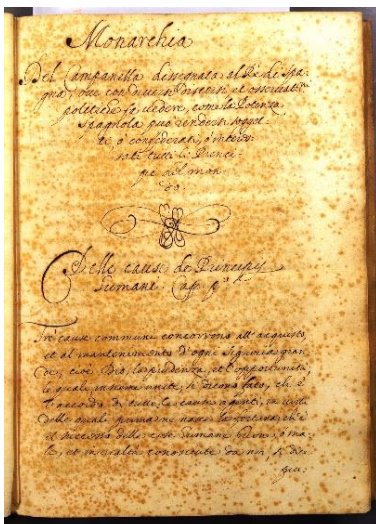 Monarchia
Del Campanella disegnata al Rè di Spa:
gna, ove con diversi discorsi, et osservati.ni
politiche fa vedere, come la Potenza
spagnola può rendersi sogget
ti, ò confederati, ò interes
sati tutti li Prenci
pi del mon
do.
Delle cause de Principij
humane Cap. p.o
Trè cause communi concorrono all' acquisto,
et al mantenimento d'ogni Signoria gran
de, cioè Dio, la prudenza, et l'opportunità,
le quali insieme unite, si dicono fato, ch'è
l'accordo di tutte le cause agenti, in virtù
delle quali
et humane buone, ò ma:
le, et in quella conosciute da noi, si dice